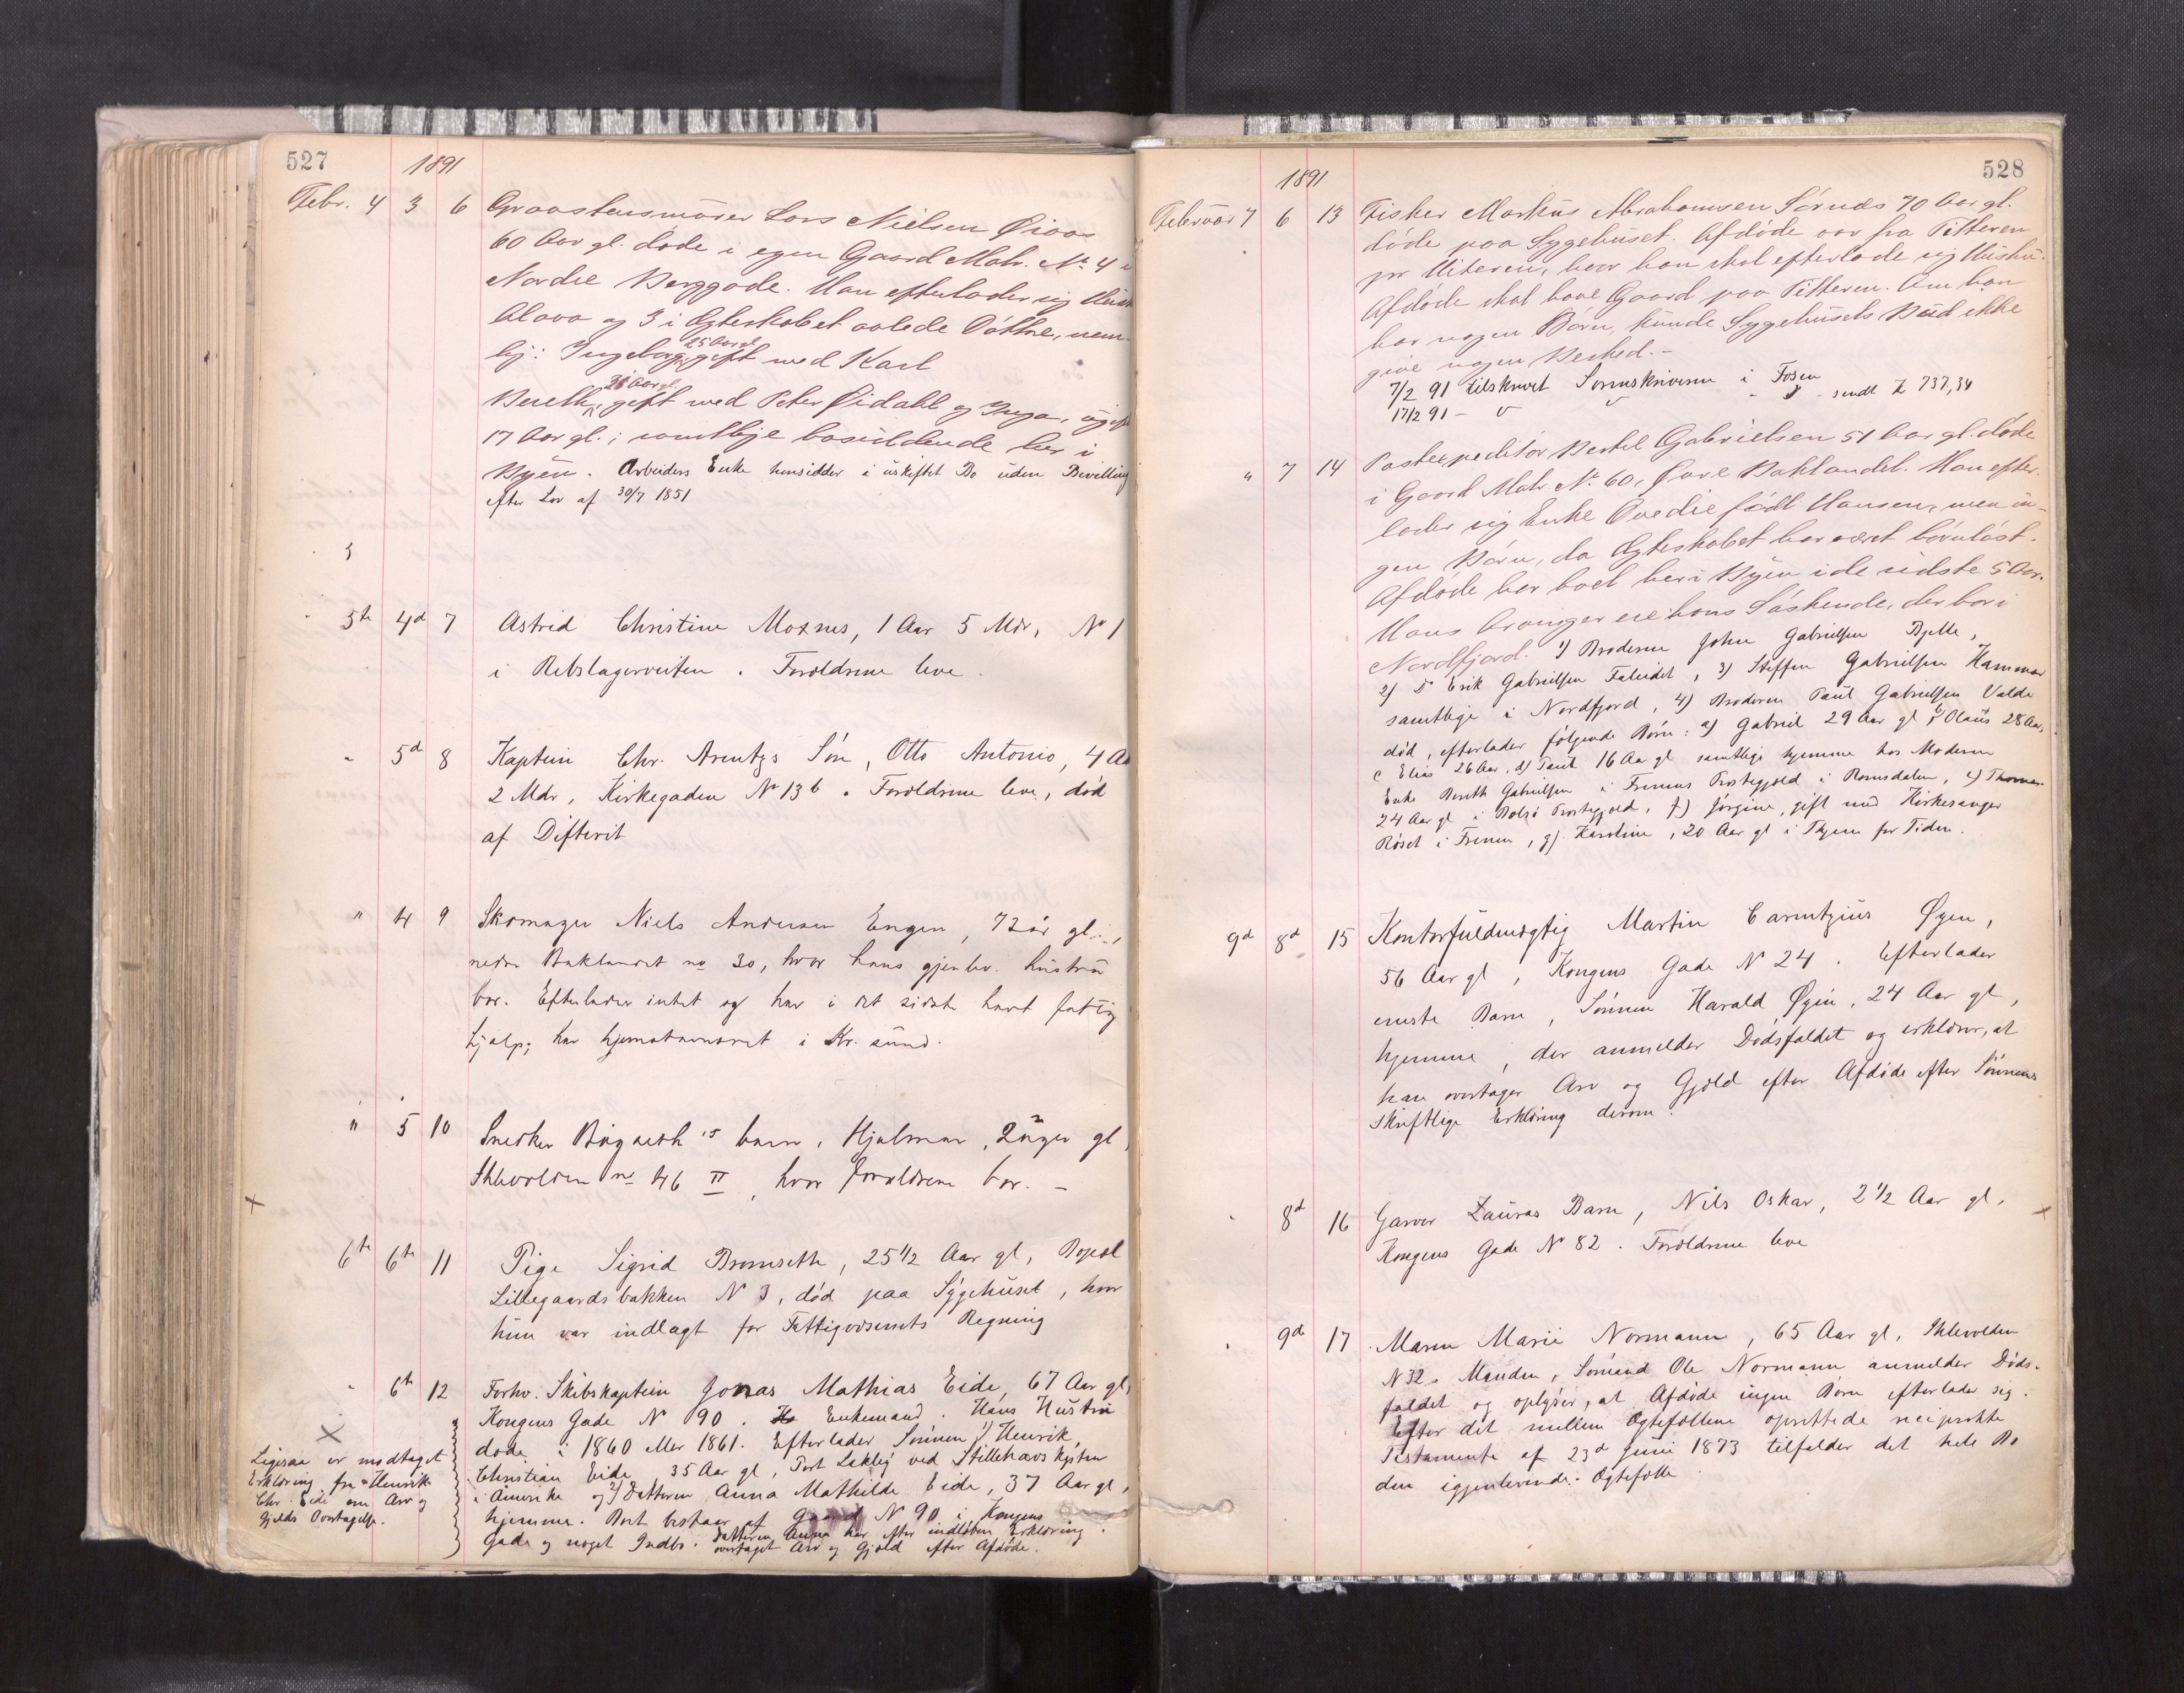 527
1891
Febr. 4 3 6 Graastensmurer Lars Nielsen Øiaas
60 Aar gl. døde i egen Gaard Matr. No 4 i
Nordre Berggade. Han efterlader sig Hust
Olava og 3 i Ægteskabet avlede Døttre, nem-
lig: Ingeborg, 25 Aar gl gift med Karl
Bereth, 21 Aar gl. gift med Peter Øidahl og Inga, ugift
17 Aar gl.; samtlige bosiddende her i
Byen. Arbeiders Enke hensidder i uskiftet Bo uden Bevilling
efter Lov af 30/7 1851
5te 4d 7 Astrid Christine Moxnes, 1 Aar 5 Mdr, No 1
i Rebslagerveiten. Forældrene leve.
" 5d 8 Kaptein Chr. Arentzs Søn, Otto Antonio, 4 Aa
2 Mdr, Kirkegaden No 13b. Forældrene leve, død
af Difterit
" 4 9 Skomager Niels Andersen Engen, 72 år gl.,
nedre Baklandet no 30, hvor hans gjenlev. hustru
bor. Efterlader intet og har i det sidste havt fattig
hjælp; har hjemstavnsret i Kr. sund.
" 5 10 Snedker Bøgseth's barn, Hjalmar, 2 uger gl,
Ihlevolden no 46 II, hvor forældrene bor. –
6te 6te 11 Pige Sigrid Bromseth, 25 1/2 Aar gl, Bopæl
Lillegaardsbakken N 3, død paa Sygehuset, hvor
hun var indlagt for Fattigvæsenets Regning
" 6te 12 Forhv. Skibskaptein Jonas Mathias Eide, 67 Aar gl,
Kongens Gade N 90. Enkemand. Hans Hustru
døde i 1860 eller 1861. Efterlader Sønnen 1) Henrik
Christian Eide, 35 Aar gl, Port ved Stillehavskysten
i Amerika og 2) Datteren Anna Mathilde Eide, 37 Aar gl,
hjemme. Boet bestaar af Gaard N 90 i Kongens
Gade og noget Indbo. Datteren Anna har efter indløben Erklæring
overtaget Arv og Gjæld efter Afdøde.
Ligesaa er modtaget
Erklæring fra Henrik
Chr. Eide om Arv og
Gjelds Overtagelse.
528
1891
Februar 7 6 13 Fisker Markus Abrahamsen Sørnæs 70 Aar gl.
døde paa Sygehuset. Afdøde var fra Titteren
pr Hiteren, hvor han skal efterlade sig Hustru.
Afdøde skal have Gaard paa Titteren. Om han
har nogen Børn, kunde Sygehusets Bud ikke
give nogen Besked.–
7/2 91 tilskrevet Sorenskriveren i Fosen
17/2 91 – sendt 737,34
" 7 14 Postexpeditør Bertel Gabrielsen 51 Aar gl. døde
i Gaard Matr No 60, Øvre Baklandet. Han efter-
lader sig Enke Ovedie født Hansen, men in-
gen Børn, da Ægteskabet har været børnløst.
Afdøde har boet her i Byen i de sidste 5 Aar.
Hans Arvinger ere hans Søskende, der bor i
Nordfjord. 1) Broderen John Gabrielsen
2) Do Erik Gabrielsen Faleidet, 3) Steffen Gabrielsen Hammer
samtlige i Nordfjord, 4) Broderen Paul Gabrielsen Valde
død, efterlader følgende Børn: a) Gabriel 29 Aar gl b) Olaus 28 Aar,
c Elias 26 Aar, d) Paul 16 Aar gl samtlige hjemme hos Moderen
Enke Bereth Gabrielsen i Frænens Præstegjæld i Romsdalen, e) Thomas
24 Aar gl i Bolsø Præstegjæld, f) Jørgine, gift med Kirkesanger
Røset i Frænen, g) Karoline, 20 Aar gl i Byen for Tiden.
9d 8d 15 Kontorfuldmægtig Martin Carentzius Øyen,
56 Aar gl, Kongens Gade N 24. Efterlader
eneste Barn, Sønnen Harald Øyen, 24 Aar gl,
hjemme, der anmelder Dødsfaldet og erklærer, at
han overtager Arv og Gjæld efter Afdøde efter Sønnens
skriftlige Erklæring derom.
" 8d 16 Garver Zauras Barn, Nils Oskar, 2 1/2 Aar gl.
Kongens Gade N 82. Forældrene leve
" 9de 17 Maren Marie Normann, 65 Aar gl, Ihlevolden
N 32. Manden, Sømand Ole Normann anmelder Døds-
faldet og oplyser, at Afdøde ingen Børn efterlader sig.
Efter det mellem Ægtefællene oprettede reciprokke
Testamente af 23de Juni 1873 tilfalder det hele Bo
den igjenlevende Ægtefælle